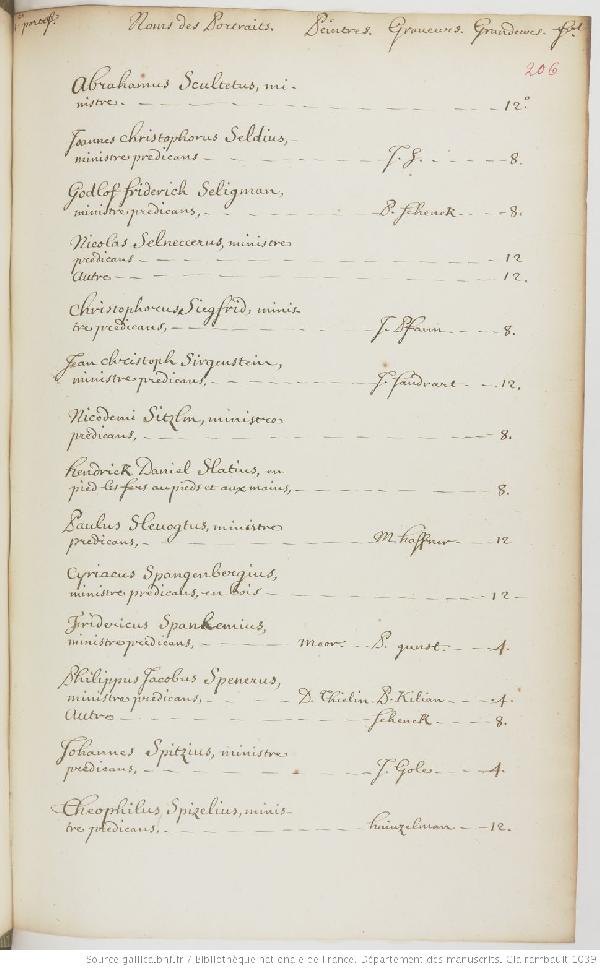 Noms des Portraits. Peintres. Graveurs. Grandeurs.
206
Abrahamus Scultetus, mi-
nistre. 12°
Joannes Christophorus Seldius,
ministre predicans J. S. 8.
Godlof friderich Seligman,
ministre predicans, P. Schenck 8.
Nicolas Selneccerus, ministre
predicans 12
Autre 12.
Christophorus Siegfrid, minis-
tre predicans, J. Pfann 8.
Jean Christoph Sirgenstein,
ministre predicans, J. Sandrart 12.
Nicodemi Sitzlin, ministre
predicans, 8.
hendrick Daniel Slatius, en
pied les fers au pieds et aux mains, 8.
Paulus Slevogtus, ministre
predicans, M. haffner 12
Cyriacus Spangenbergius,
ministre predicans, en bois 12
Fridericus Spankemius,
ministre predicans, Moor. P. gunst. 4.
Philippus Jacobus Spenerus,
ministre predicans, D. Thielin P. Kilian 4.
Autre Schenck 8.
Johannes Spitzius, ministre
predicans, J. Gole 4.
Theophilus Spizelius, minis-
tre predicans, hainzelman 12.
Source gallica.bnf.fr / Bibliothèque nationale de France. Département des manuscrits. Clairambault 1039